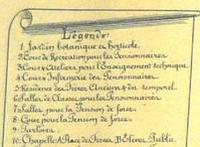 Légende:
1. Jardin botanique et horticole.
2. Cour de Récréation pour les Pensionnaires
3. Cour & Ateliers pour l'Enseignement technique
4. Cour & Infirmerie des Pensionnaires.
5. Résidence des Frères Anciens & du temporel.
6. Salles de Classes pour les Pensionnaires
7. Salles pour la Pension de force.
8. Cour pour la Pension de force.
9. Parloirs.
10. Chapelle A. Place des Frères B. Elèves Public.